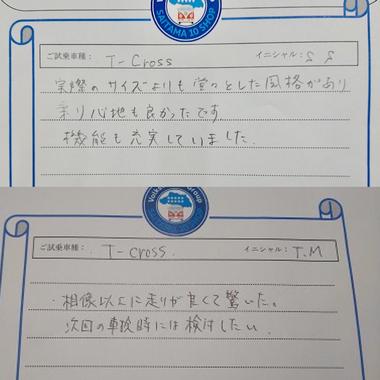 SAITAMA 10 SHOP
ご試乗車種： T-Cross イニシャル： S S
実際のサイズよりも堂々とした風格があり
乗り心地も良かったです
機能も充実していました.
ご試乗車種： T-cross. イニシャル： T.M
・相像以上に走りが良くて驚いた。
次回の車検時には検討したい.